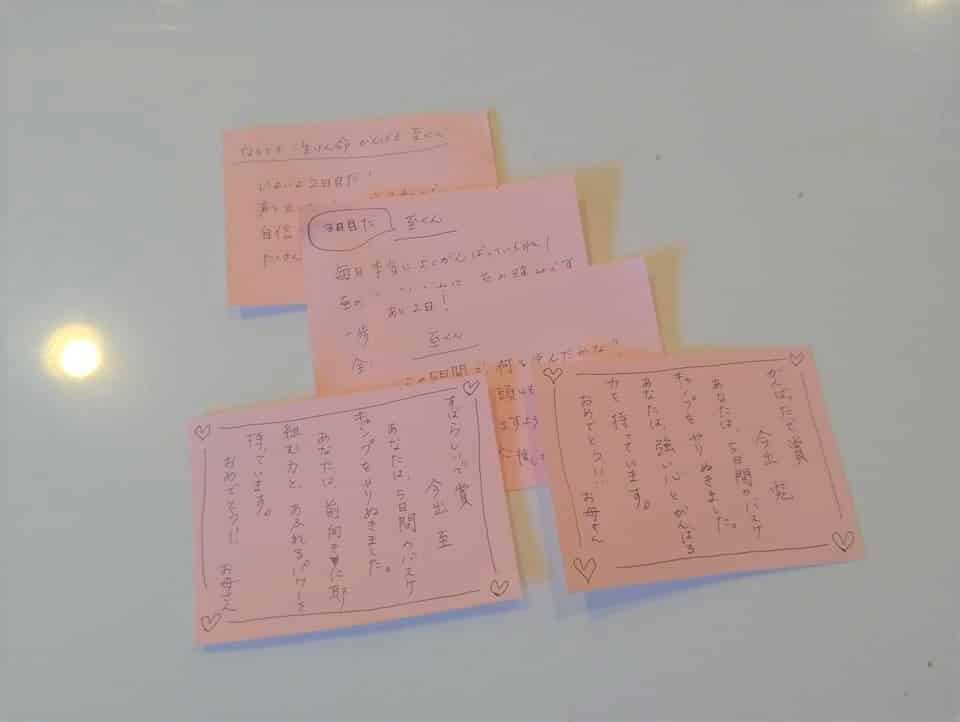 なんでも一生けん命がんばる至くん
いよいよ2日目だ！
自信
たくさん
3日目だ 至くん
毎日本当によくがんばっているね！
至の
一歩
あと2日！
全
至くん
この5日間で、何を学んだかな？
頭も
すばらしいで賞
今出 至
あなたは、5日間のバスケ
キャンプをやりぬきました。
あなたは、前向きに取
組む力と、あふれるパワーを
持っています。
おめでとう!! お母さん
がんばったで賞
今出
あなたは、5日間のバスケ
キャンプをやりぬきました。
あなたは、強い心とがんばる
力を持っています。
おめでとう!! お母さん